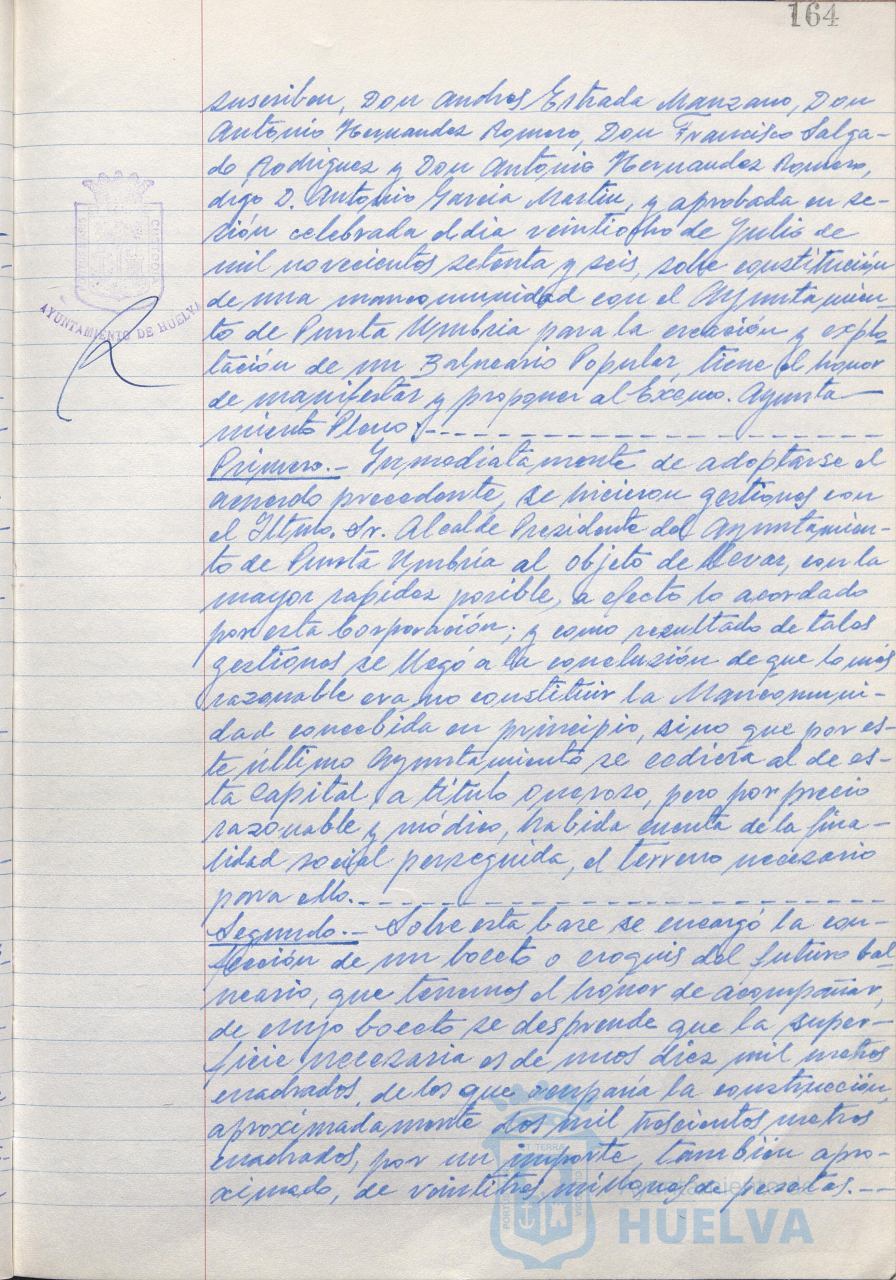 164
suscriben, Don Andrés Estrada Manzano, Don
Antonio Hernandez Romero, Don Francisco Salga-
do Rodriguez y Don Antonio Hernandez Romero,
digo D. Antonio García Martin, y aprobada en se-
sión celebrada el dia veintiocho de Julio de
mil novecientos setenta y seis, sobre constitución
de una mancomunidad con el Ayuntamien-
to de Punta Umbria para la creación y explo-
tación de un Balneario Popular, tiene el honor
de manifestar y proponer al Excmo. Ayunta-
miento Pleno:
Primero.- Inmediatamente de adoptarse el
acuerdo precedente, se hicieron gestiones con
el Iltmo. Sr. Alcalde Presidente del Ayuntamien-
to de Punta Umbría al objeto de llevar, con la
mayor rapidez posible, a efecto lo acordado
por esta Corporación; y como resultado de tales
gestiones se llegó a la conclusión de que lo más
razonable era no constituir la Mancomuni-
dad concebida en principio, sino que por es-
te último Ayuntamiento se cediera al de es-
ta Capital, a título oneroso, pero por precio
razonable y módico, habida cuenta de la fina-
lidad social perseguida, el terreno necesario
para ello.
Segundo.- Sobre esta base se encargó la con-
fección de un boceto o croquis del futuro bal-
neario, que tenemos el honor de acompañar,
de cuyo boceto se desprende que la super-
ficie necesaria es de unos diez mil metros
cuadrados, de los que ocuparía la construcción,
aproximadamente dos mil trescientos metros
cuadrados, por un importe, también apro-
ximado, de veintitres millones de pesetas.--
AYUNTAMIENTO DE HUELVA
Ayuntamiento de
HUELVA